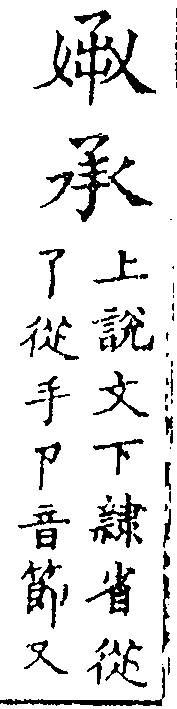 承
上說文下隸省從
了從手卩音節又